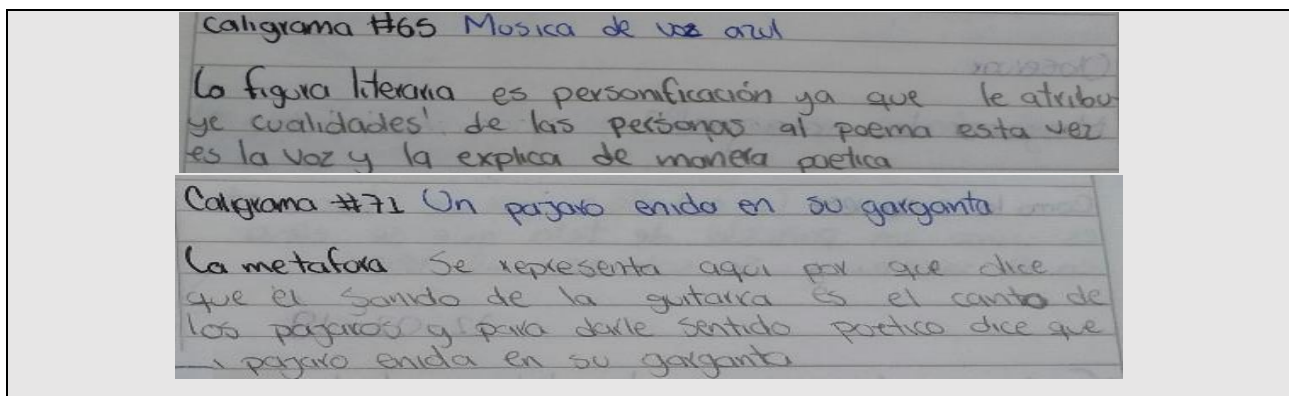 Caligrama #65 Musica de voz azul
La figura literaria es personificación ya que le atribu
ye cualidades de las personas al poema esta vez
es la voz y la explica de manera poetica
Caligrama #71 Un pajaro enida en su garganta
La metafora Se representa aqui por que dice
que el sonido de la guitarra es el canto de
los pajaros y para darle sentido poetico dice que
pajaro enida en su garganta